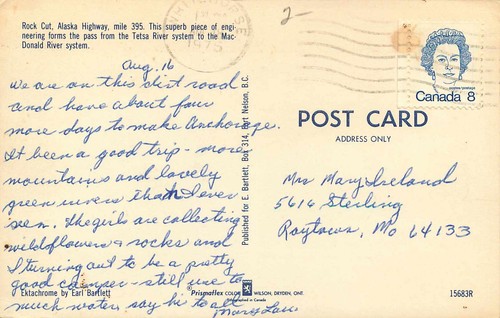 Rock Cut, Alaska Highway, mile 395. This superb piece of engi-
neering forms the pass from the Tetsa River system to the Mac-
Donald River system.
Aug. 16
We are on this dirt road
and have about four
more days to make Anchorage.
It been a good trip - more
mountains and lovely
green rivers than I ever
seen. The girls are collecting
wildflowers & rocks and
I turning out to be a pretty
good camper - still use to
much water, say hi to all
Mary Lou
Ektachrome by Earl Bartlett
Published for E. Bartlett, Box 314, Fort Nelson, B.C.
Prismaflex COLOR WILSON, DRYDEN, ONT.
Lithographed in Canada
1975
2-
Canada 8
POST CARD
ADDRESS ONLY
Mrs Mary Ireland
5616 Sterling
Raytown, Mo 64133
15683R